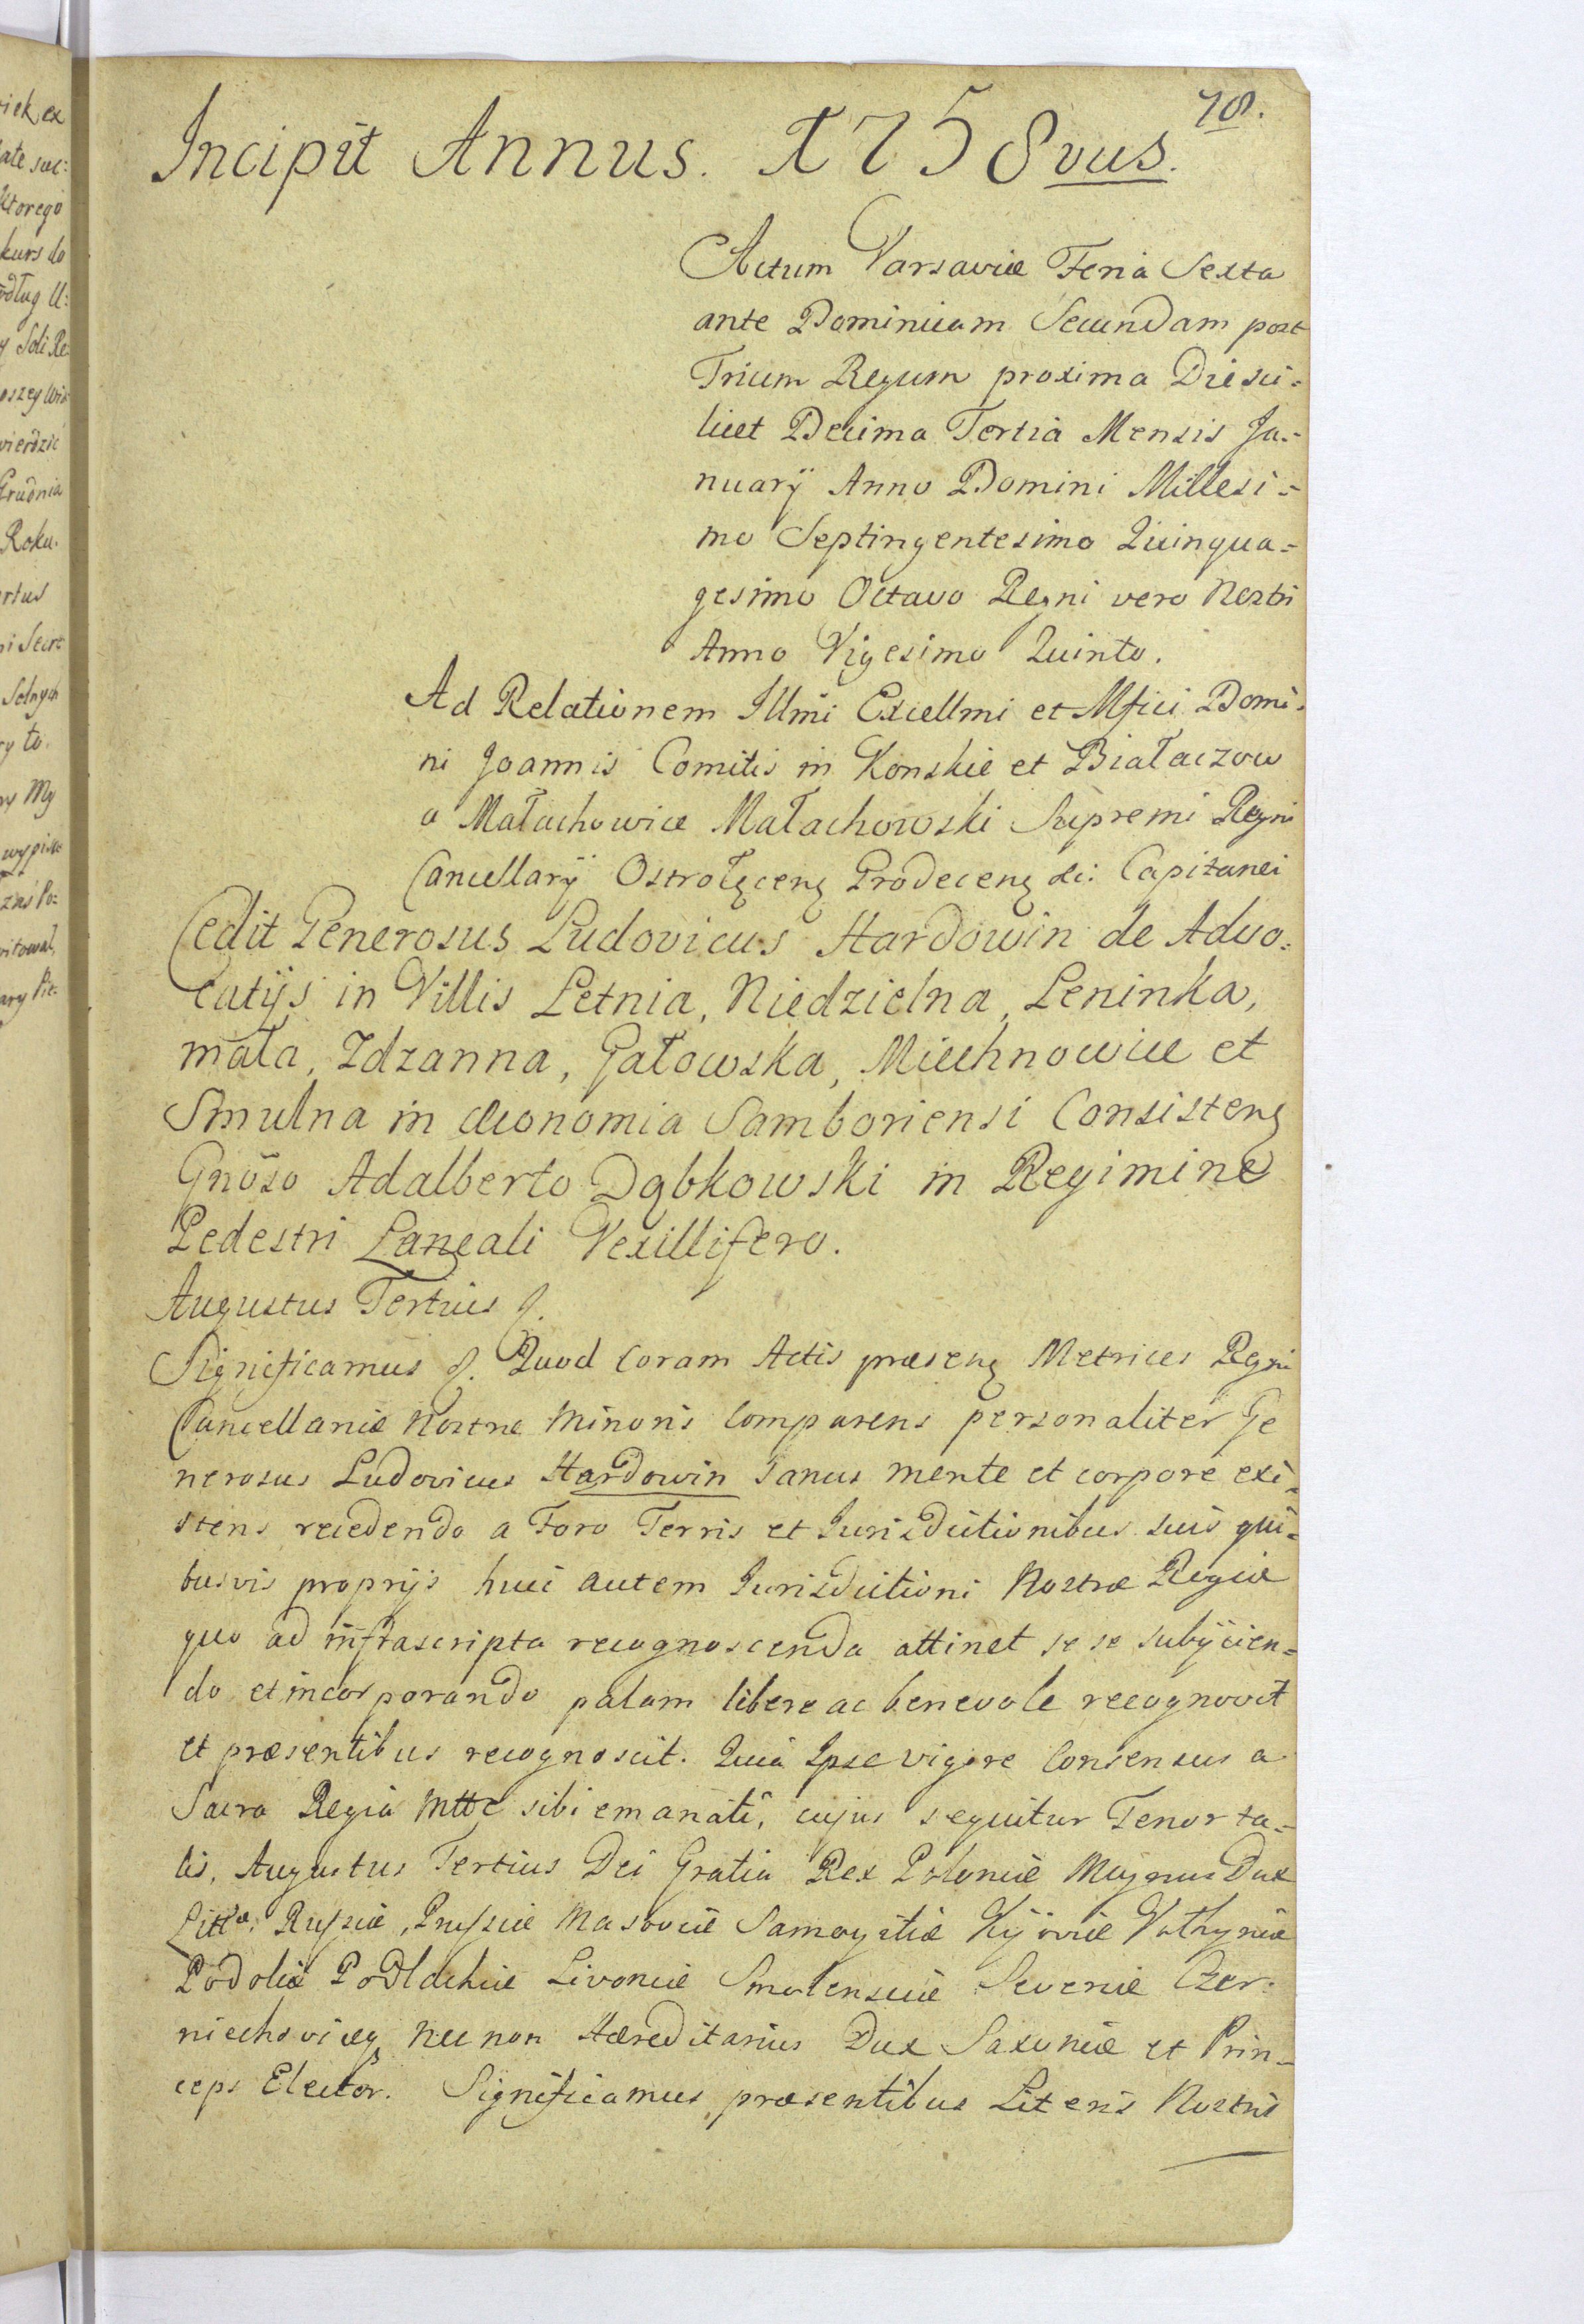 78.
Incipit Annus. 1758vus.
Actum Varsaviæ Feria Sexta
ante Dominicam Secundam post
Trium Regum proxima Die sci-
licet Decima Tertia Mensis Ja-
nuarÿ Anno Domini Millesi-
mo Septingentesimo Quinqua-
gesimo Octavo Regni vero Nostri
Anno Vigesimo Quinto.
Ad Relationem Illmi Excellmi et Mfici Domi-
ni Joannis Comitis in Konskie et Białaczow
a Małachowice Małachowski Supremi Regni
Cancellarÿ Ostrołęcen̨ Prodecen̨ &c: Capitanei
Cedit Generosus Ludovicus Hardowin de Advo-
catijs in Villis Letnia, Niedzielna, Leninka,
mała, Zdzanna, Gałowska, Miechnowice et
Smulna in Œconomia Samboriensi Consisten̨
Gnoso Adalberto Dąbkowski in Regimine
Pedestri Laneali Vexillifero.
Augustus Tertius &.
Significamus &. Quod Coram Actis præsen̨ Metrices Regni
Cancellariæ Nostræ Minoris Comparens personaliter Ge
nerosus Ludovicus Hardowin Sanus mente et corpore exi-
stens recedendo a Foro Terris et Jurisdictionibus suis qui-
busvis proprijs huic autem Jurisdictioni Nostræ Regiæ
quo ad infrascripta recognoscenda attinet se se subijcien-
do et incorporando palam libere ac benevole recognovit
et præsentibus recognoscit. Quia Ipse vigore Consensus a
Sacra Regia Mtte sibi emanati, cujus sequitur Tenor ta-
lis, Augustus Tertius Dei Gratia Rex Poloniæ Magnus Dux
Littæ, Russiæ, Prussiæ Masoviæ Samogitiæ Kijoviæ Volhyniæ
Podoliæ Podlachiæ Livoniæ Smolensciæ Severiæ Czer-
niechoviæq necnon Hæreditarius Dux Saxoniæ et Prin-
ceps Elector. Significamus præsentibus Literis Nostris